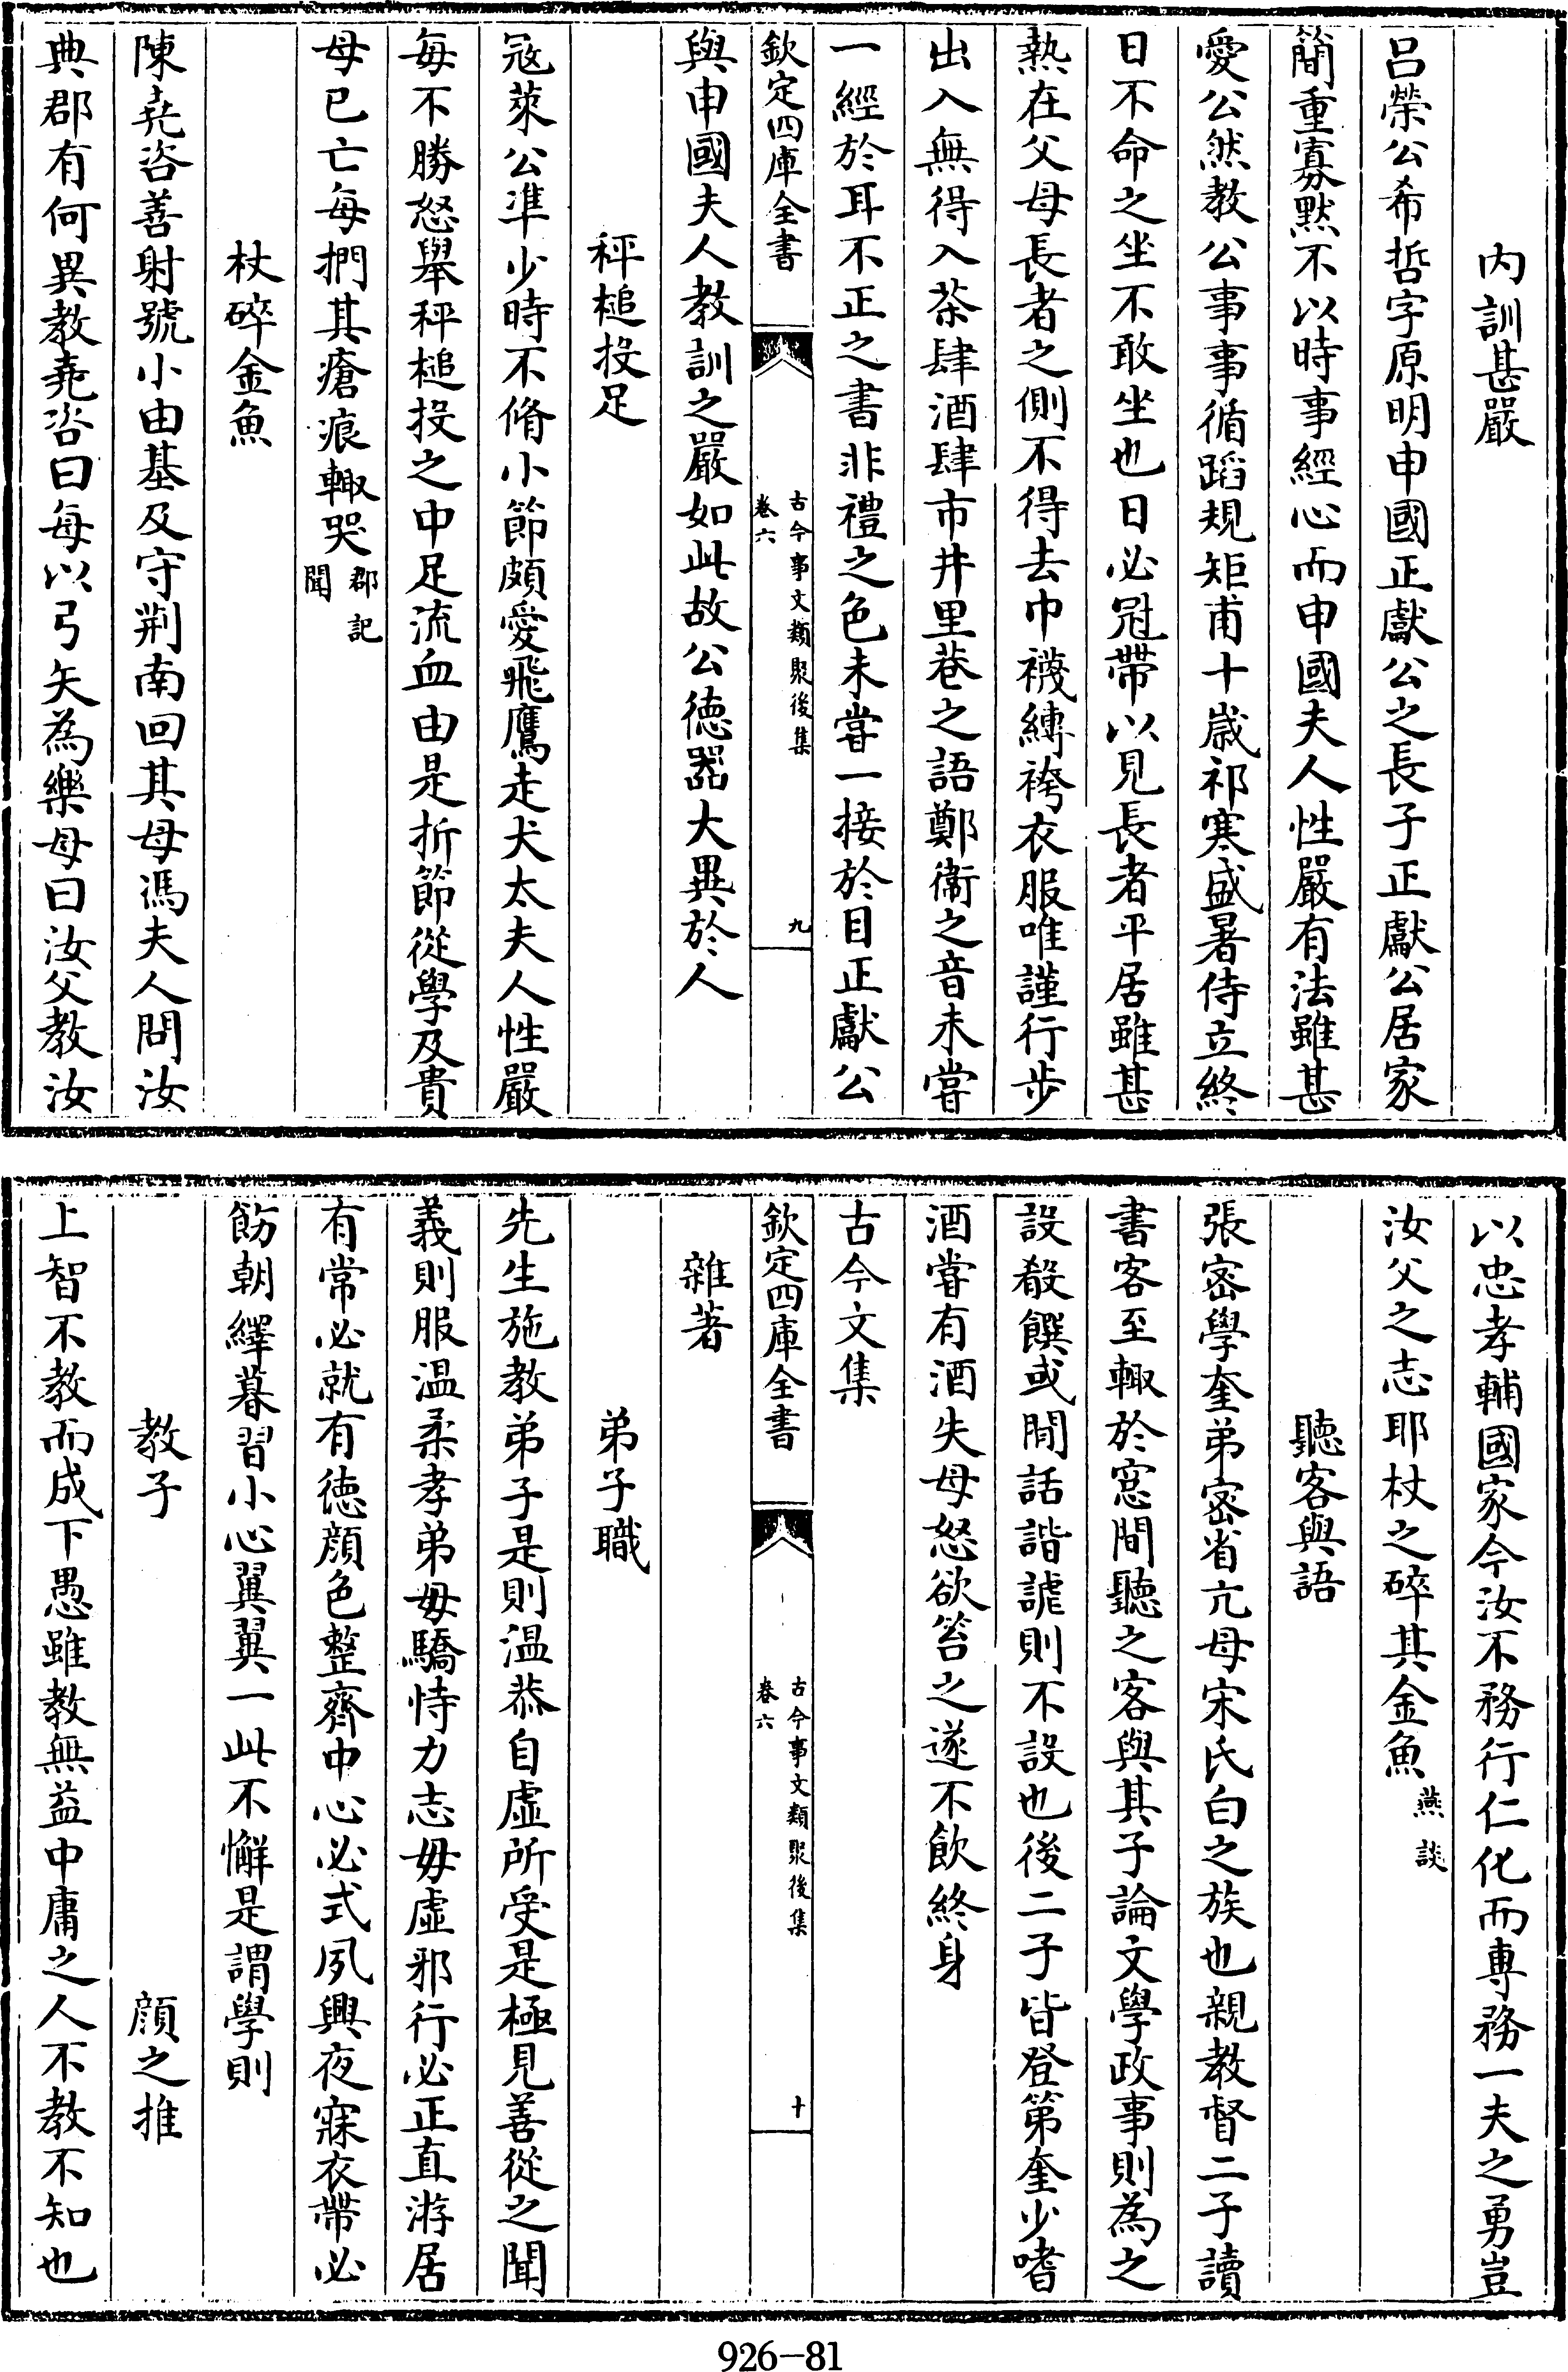 内訓甚嚴
呂榮公希哲字原明申國正獻公之長子正獻公居家
簡重寡默不以時事經心而申國夫人性嚴有法雖甚
愛公然教公事事循蹈規矩甫十歲祁寒盛暑侍立終
日不命之坐不敢坐也日必冠帶以見長者平居雖甚
熱在父母長者之側不得去巾襪縛袴衣服唯謹行步
出入無得入茶肆酒肆市井里巷之語鄭衞之音未嘗
一經於耳不正之書非禮之色未嘗一接於目正獻公
欽定四庫全書
古今事文類聚後集
卷六
九
與申國夫人教訓之嚴如此故公德器大異於人
秤槌投足
宼萊公凖少時不脩小節頗愛飛鷹走犬太夫人性嚴
每不勝怒舉秤槌投之中足流血由是折節從學及貴
母已亡每捫其瘡痕輙哭
郡記
聞
杖碎金魚
陳堯咨善射號小由基及守荆南回其母馮夫人問汝
典郡有何異教堯咨曰每以弓矢為樂母曰汝父教汝
以忠孝輔國家今汝不務行仁化而專務一夫之勇豈
汝父之志耶杖之碎其金魚
燕談
聽客與語
張密學奎弟密省亢母宋氏白之族也親教督二子讀
書客至輙於窓間聽之客與其子論文學政事則為之
設殽饌或閒話諧謔則不設也後二子皆登第奎少嗜
酒嘗有酒失母怒欲笞之遂不飲終身
古今文集
欽定四庫全書
古今事文類聚後集
卷六
十
雜著
弟子職
先生施教弟子是則温恭自虚所受是極見善從之聞
義則服温柔孝弟毋驕恃力志毋虚邪行必正直游居
有常必就有德顔色整齊中心必式夙興夜寐衣帶必
飭朝繹暮習小心翼翼一此不懈是謂學則
教子　顔之推
上智不教而成下愚雖教無益中庸之人不教不知也
926-81